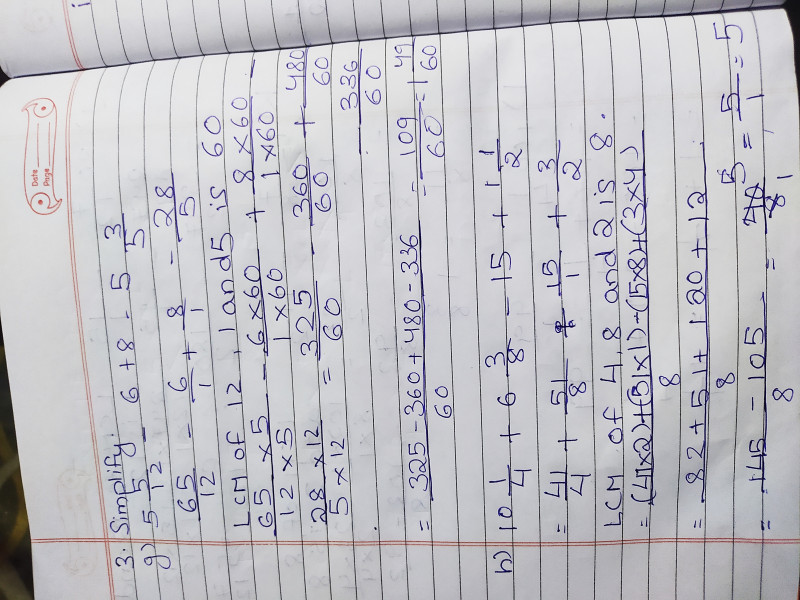 Date
Page
3. Simplify.
g) 5 5/12 - 6 + 8 - 5 3/5
65/12 - 6/1 + 8/1 - 28/5
LCM of 12, 1 and 5 is 60
65 × 5/12 × 5 - 6 × 60/1 × 60 + 8 × 60/1 × 60 -
28 × 12/5 × 12 = 325/60 - 360/60 + 480/60
336/60
= 325 - 360 + 480 - 336/60 = 109/60 = 1 49/60
h) 10 1/4 + 6 3/8 - 15 + 1 1/2
= 41/4 + 51/8 - 15/1 + 3/2
LCM of 4, 8 and 2 is 8.
= (41×2)+(51×1)-(15×8)+(3×4)/8
= 82 + 51 + 120 + 12/8
= 145 - 105/8 = 40 5/8 1 = 5/1 = 5